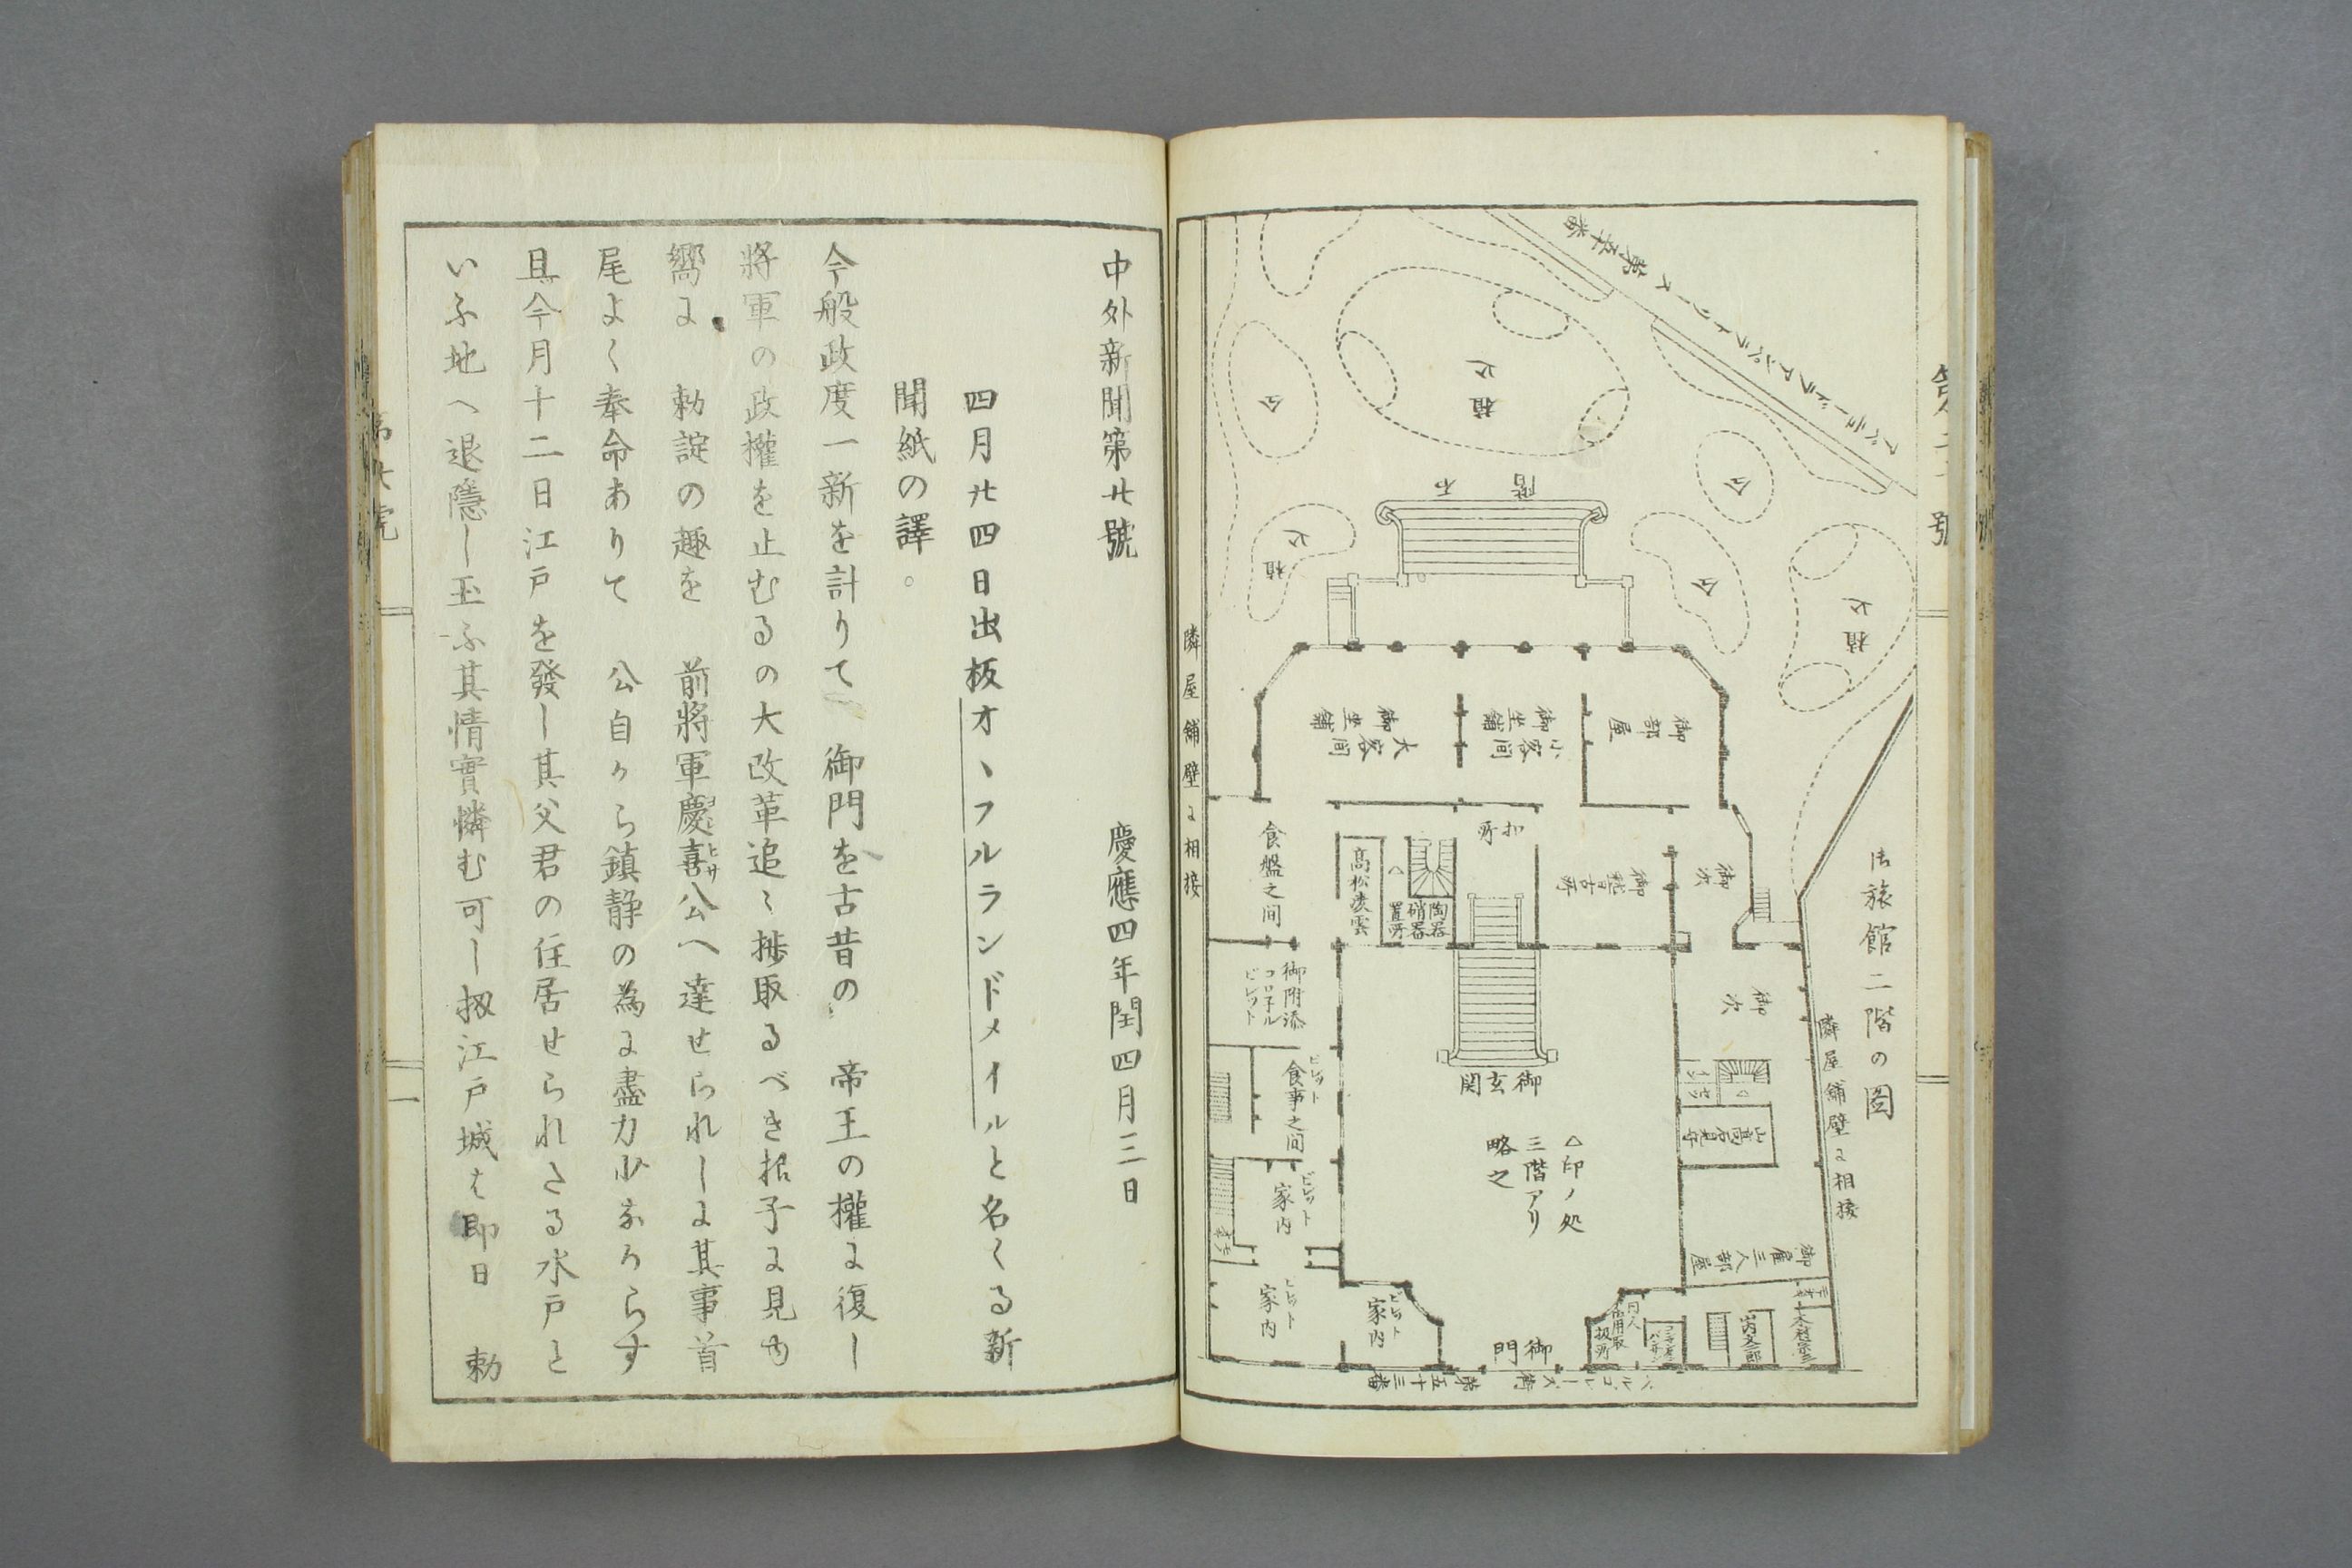 法旅館二階の圖
隣屋鋪壁ニ相接
植込
仝
植込
仝
仝
植込
石階
御部屋
御坐鋪
小客間
御坐鋪
大客間
御次
御稽古所
扣所
高松凌雲
陶器
硝器
置所
食盤之间
御次
御附添
コロネル
ビレット
ビレット
食事之间
ビレット
家内
ビレット
家内
ビレット
家内
御玄関
△印ノ処
三階アリ
略之
山髙石見守
御雇三人部屋
木村宗三
山内文次郎
御門
隣屋鋪壁ニ相接
中外新聞第廿號
慶應四年閏四月三日
四月廿四日出板オヽフルランドメイルと名くる新
聞紙の譯。
今般政度一新を計りて 御門を古昔の 帝王の權に復し
將軍の政權を止むるの大改革追〻捗取るべき樣子に見ゆ
嚮に 勅諚の趣を 前將軍慶喜公へ達せられしに其事首
尾よく奉命ありて 公自から鎮静の為に盡力少なからす
且今月十二日江戸を發し其父君の住居せられたる水戸と
いふ地へ退隱し玉ふ其情實憐む可し扨江戸城は即日 勅